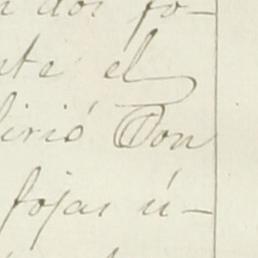 a dos fo-
nte el
firió Don
fojas ú-